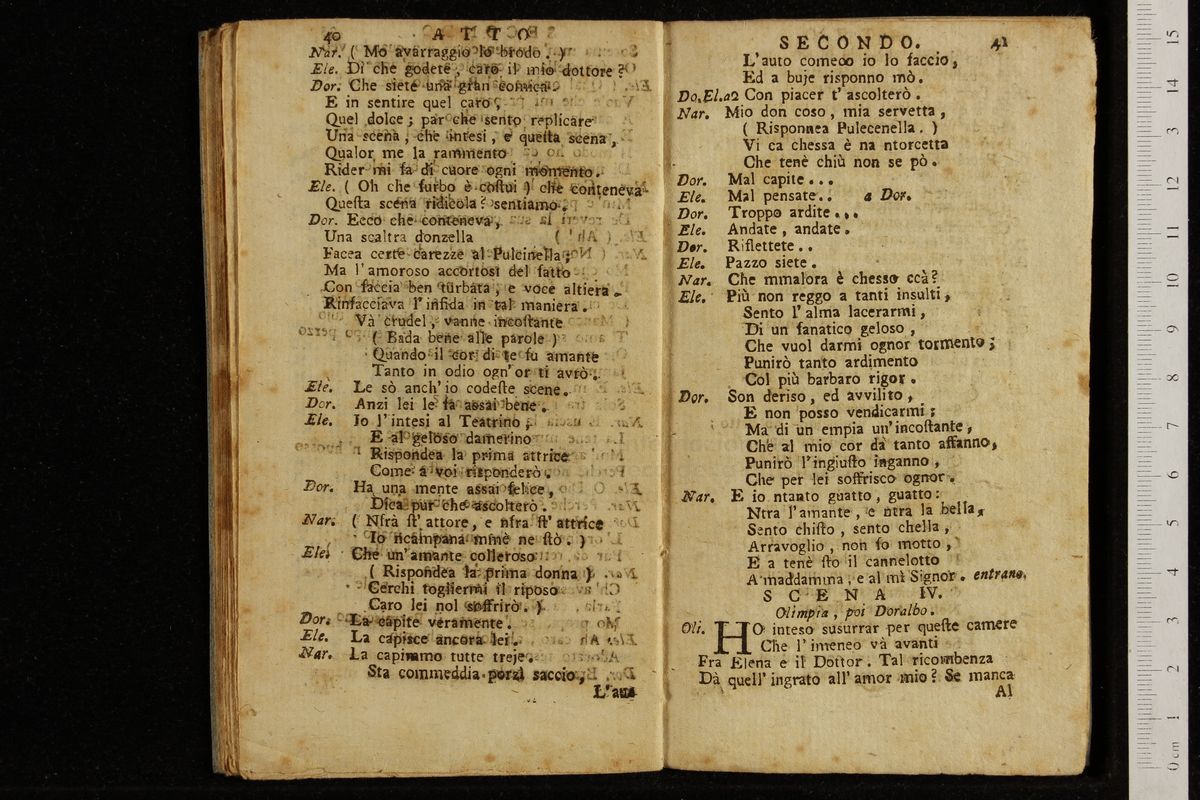 40 ATTO
Nar. ( Mo avarraggio lo brodo . )
Ele. Di che godete , caro il mio dottore ?
Dor. Che siete una gran comica .
E in sentire quel caro ,
Quel dolce ; par che sento replicare
Una scena , che intesi , e questa scena ,
Qualor me la rammento
Rider mi fa di cuore ogni momento .
Ele. ( Oh che furbo è costui ) che conteneva
Questa scena ridicola ? sentiamo .
Dor. Ecco che conteneva ,
Una scaltra donzella
Facea certe carezze al Pulcinella ;
Ma l' amoroso accortosi del fatto
Con faccia ben turbata , e voce altiera .
Rinfacciava l' infida in tal maniera .
Và crudel , vanne incostante
( Bada bene alle parole )
Quando il cor di te fu amante
Tanto in odio ogn' or ti avrò .
Ele. Le sò anch' io codeste scene .
Dor. Anzi lei le fa assai bene .
Ele. Io l' intesi al Teatrino ;
E al geloso damerino
Rispondea la prima attrice
Come a voi risponderò .
Dor. Ha una mente assai felice ,
Dica pur che ascolterò .
Nar. ( Nfrà st' attore , e nfra st' attrice
Io ncampana mmè ne stò . )
Ele. Che un' amante colleroso
( Rispondea la prima donna )
Cerchi togliermi il riposo
Caro lei nol soffrirò . )
Dor. La capite veramente .
Ele. La capisce ancora lei .
Nar. La capimmo tutte treje .
Sta commeddia porzì saccio ,
L' aut
SECONDO. 41
L' auto comeco io lo faccio ,
Ed a buje risponno mò .
Do. El. a2 Con piacer t' ascolterò .
Nar. Mio don coso , mia servetta ,
( Risponnea Pulecenella . )
Vi ca chessa è na ntorcetta
Che tenè chiù non se pò .
Dor. Mal capite ...
Ele. Mal pensate .. a Dor.
Dor. Troppo ardite ...
Ele. Andate , andate .
Dor. Riflettete ..
Ele. Pazzo siete .
Nar. Che mmalora è chesso ccà ?
Ele. Più non reggo a tanti insulti ,
Sento l' alma lacerarmi ,
Di un fanatico geloso ,
Che vuol darmi ognor tormento ;
Punirò tanto ardimento
Col più barbaro rigor .
Dor. Son deriso , ed avvilito ,
E non posso vendicarmi ;
Ma di un empia un' incostante ,
Che al mio cor dà tanto affanno ,
Punirò l' ingiusto inganno ,
Che per lei soffrisco ognor .
Nar. E io ntanto guatto , guatto :
Ntra l' amante , e ntra la bella ,
Sento chisto , sento chella ,
Arravoglio , non fo motto ,
E a tenè sto il cannelotto
A maddamma , e al mi Signor . entrano.
SCENA IV.
Olimpia , poi Doralbo .
Oli. HO inteso susurrar per queste camere
Che l' imeneo và avanti
Fra Elena e il Dottor . Tal ricombenza
Dà quell' ingrato all' amor mio ? Se manca
Al